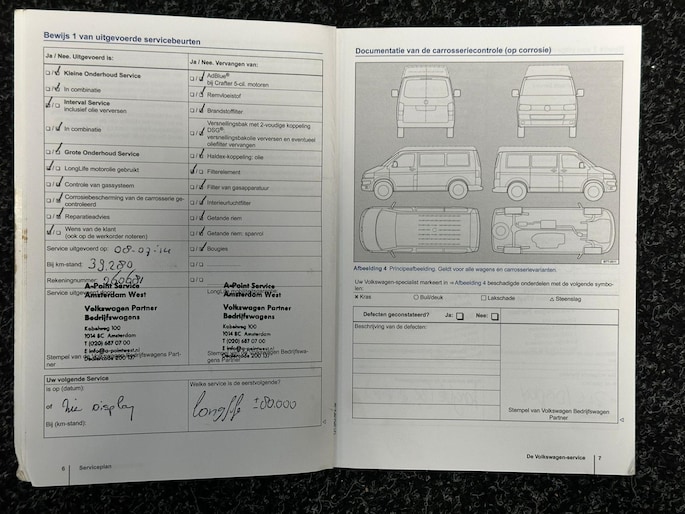 Bewijs 1 van uitgevoerde servicebeurten
Ja / Nee. Uitgevoerd is:
Kleine Onderhoud Service
In combinatie
Interval Service
Inclusief olie verversen
In combinatie
Grote Onderhoud Service
LongLife motorolie gebruikt
Controle van gassysteem
Corrosiebescherming van de carrosserie ge-
controleerd
Reparatieadvies
Wens van de klant
(ook op de werkorder noteren)
Service uitgevoerd op: 08-07-14
Bij km-stand: 39.280
Rekeningnummer:
Service uitgevoerd
A-Point Service
Amsterdam West
Volkswagen Partner
Bedrijfswagens
Kabelweg 100
1014 BC Amsterdam
T (020) 687 07 00
E info@a-pointwest.nl
Dealercode 200 137
Stempel van Volkswagen Bedrijfswagens Part-
ner
Ja / Nee. Vervangen van:
AdBlue®
bij Crafter 5-cil. motoren
Remvloeistof
Brandstoffilter
Versnellingsbak met 2-voudige koppeling
DSG®:
versnellingsbakolie verversen en eventueel
oliefilter vervangen
Haldex-koppeling: olie
Filterelement
Filter van gasapparatuur
Interieurluchtfilter
Getande riem
Getande riem: spanrol
Bougies
A-Point Service
Amsterdam West
Volkswagen Partner
Bedrijfswagens
Kabelweg 100
1014 BC Amsterdam
T (020) 687 07 00
E info@a-pointwest.nl
Dealercode 200 137
Uw volgende Service
is op (datum):
of Zie Display
Bij (km-stand):
Welke service is de eerstvolgende?
longlife ± 80.000
6 Serviceplan
Documentatie van de carrosseriecontrole (op corrosie)
Afbeelding 4 Principeafbeelding. Geldt voor alle wagens en carrosserievarianten.
Uw Volkswagen-specialist markeert in ⇒ Afbeelding 4 beschadigde onderdelen met de volgende symbo-
len:
× Kras ○ Buil/deuk □ Lakschade △ Steenslag
Defecten geconstateerd? Ja: Nee:
Beschrijving van de defecten:
Stempel van Volkswagen Bedrijfswagen
Partner
De Volkswagen-service 7